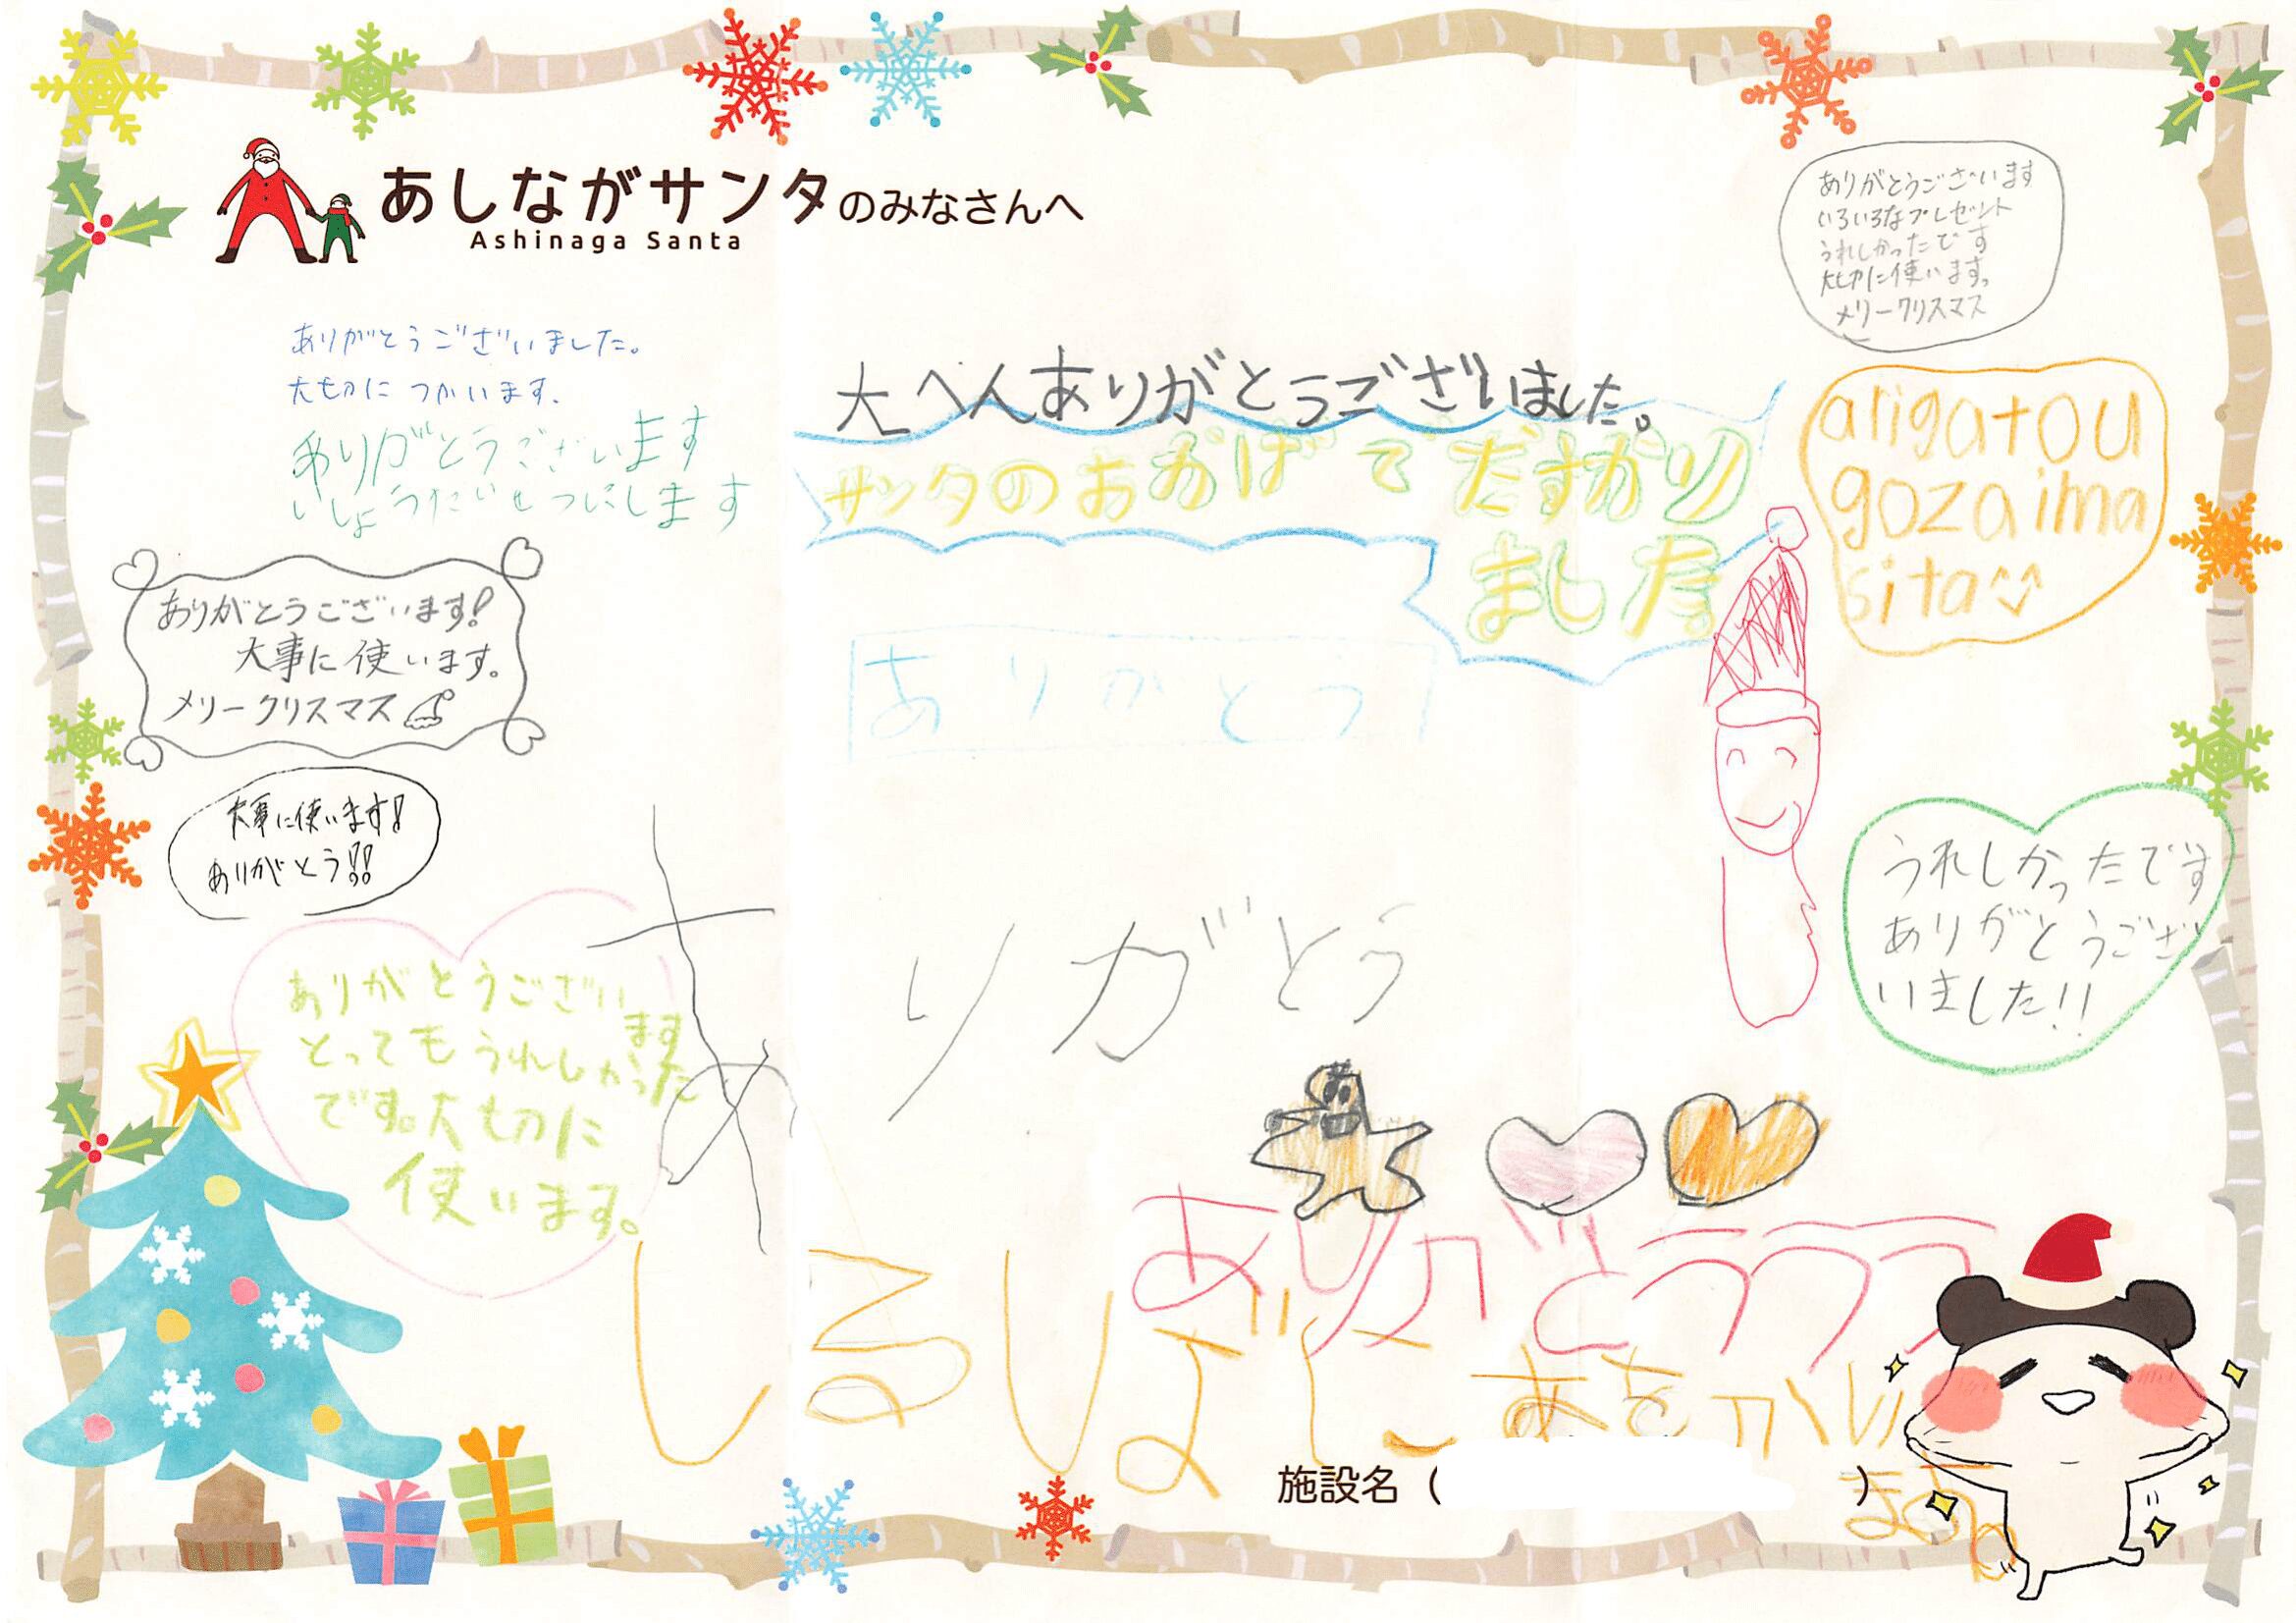 あしながサンタのみなさんへ
Ashinaga Santa
ありがとうございました。
大切に つかいます。
ありがとうございます
いしょうたいせつにします
ありがとうございます!
大事に使います。
メリークリスマス
大事に使います!
ありがとう!!
ありがとうござい
ます
とってもうれしかった
です。大切に
使います。
大へんありがとうございました。
サンタのおかげで
たすかり
ました
ありがとう
ありがとう
ありがとううう
ありがとうございます
いろいろなプレゼント
うれしかったです
大切に使います。
メリークリスマス
arigatou
gozaima
sita
うれしかったです
ありがとうござ
いました!!
施設名 ( )